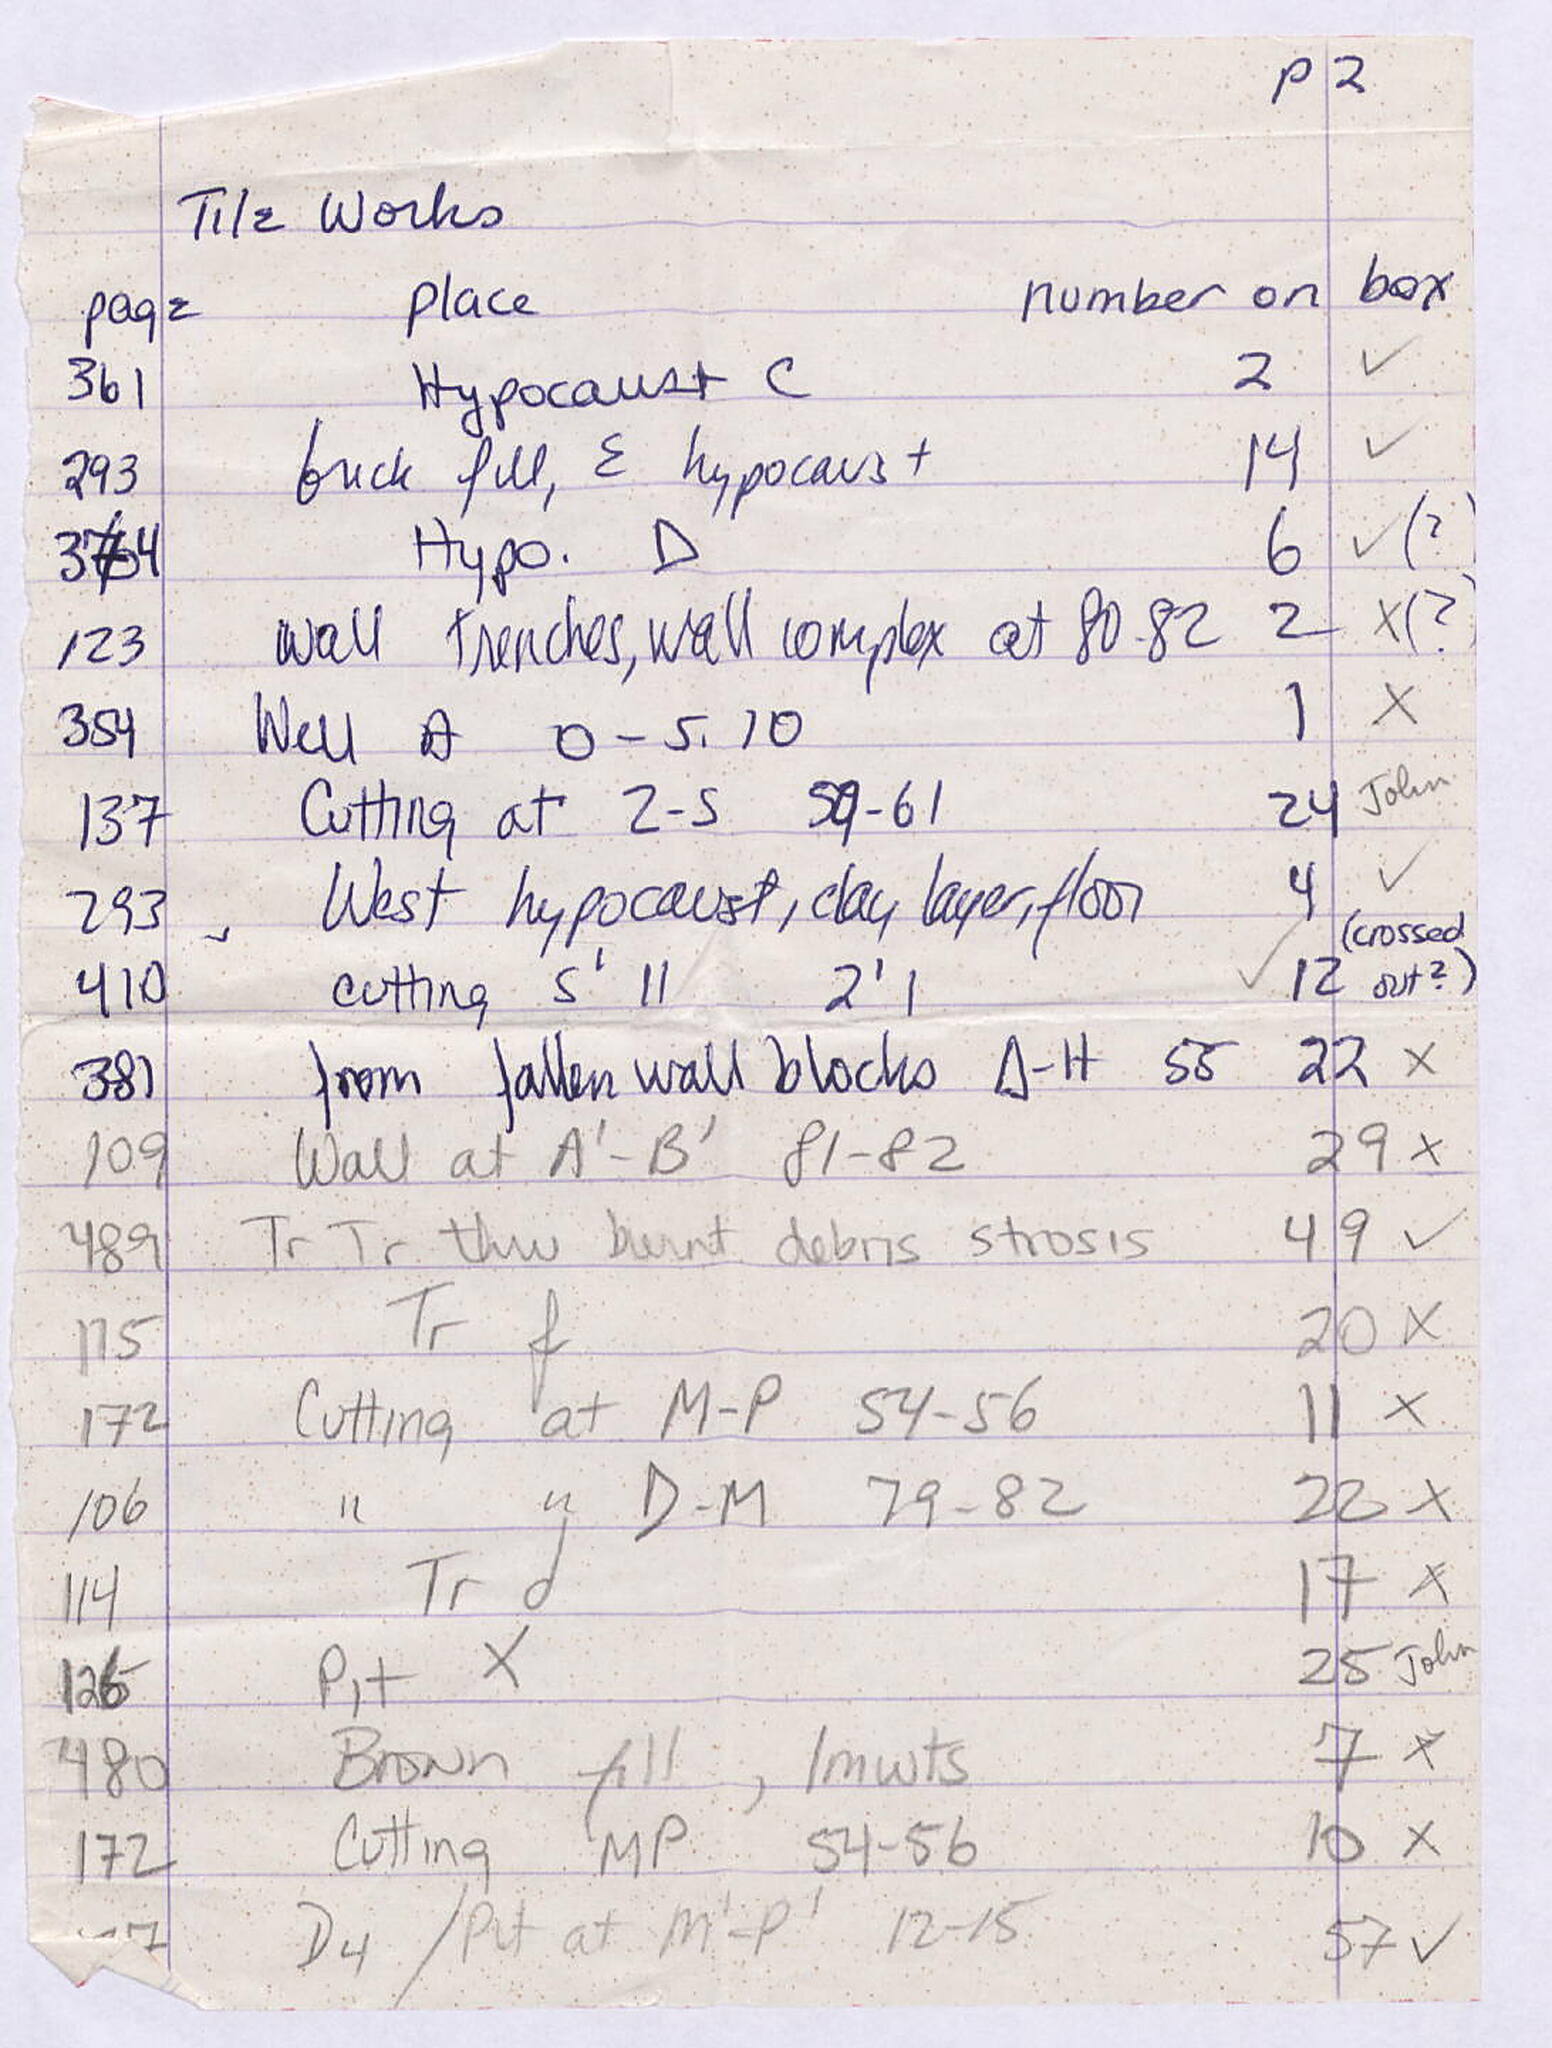 p 2
Tile Works
page place number on box
361 Hypocaust C 2 ✓
293 brick fill, E hypocaust 14 ✓
3764 Hypo. D 6 ✓(?)
123 wall trenches, wall complex at 80-82 2 X(?)
354 Well A 0-5.10 1 X
137 Cutting at 2-5 59-61 24 John
293 West hypocaust, clay layer, floor 4 ✓
410 cutting 5' 11 2'1 ✓ 12 (crossed out?)
381 from fallen wall blocks D-H 55 22 X
109 Wall at A'-B' 81-82 29 X
489 Tr Tr thru burnt debris strosis 49 ✓
115 Tr f 20 X
172 Cutting at M-P 54-56 11 X
106 " " D-M 79-82 22 X
114 Tr d 17 X
126 Pit X 25 John
480 Brown fill, 7 X
172 Cutting MP 54-56 10 X
D4 / Pit at M'-P' 12-15 57 ✓